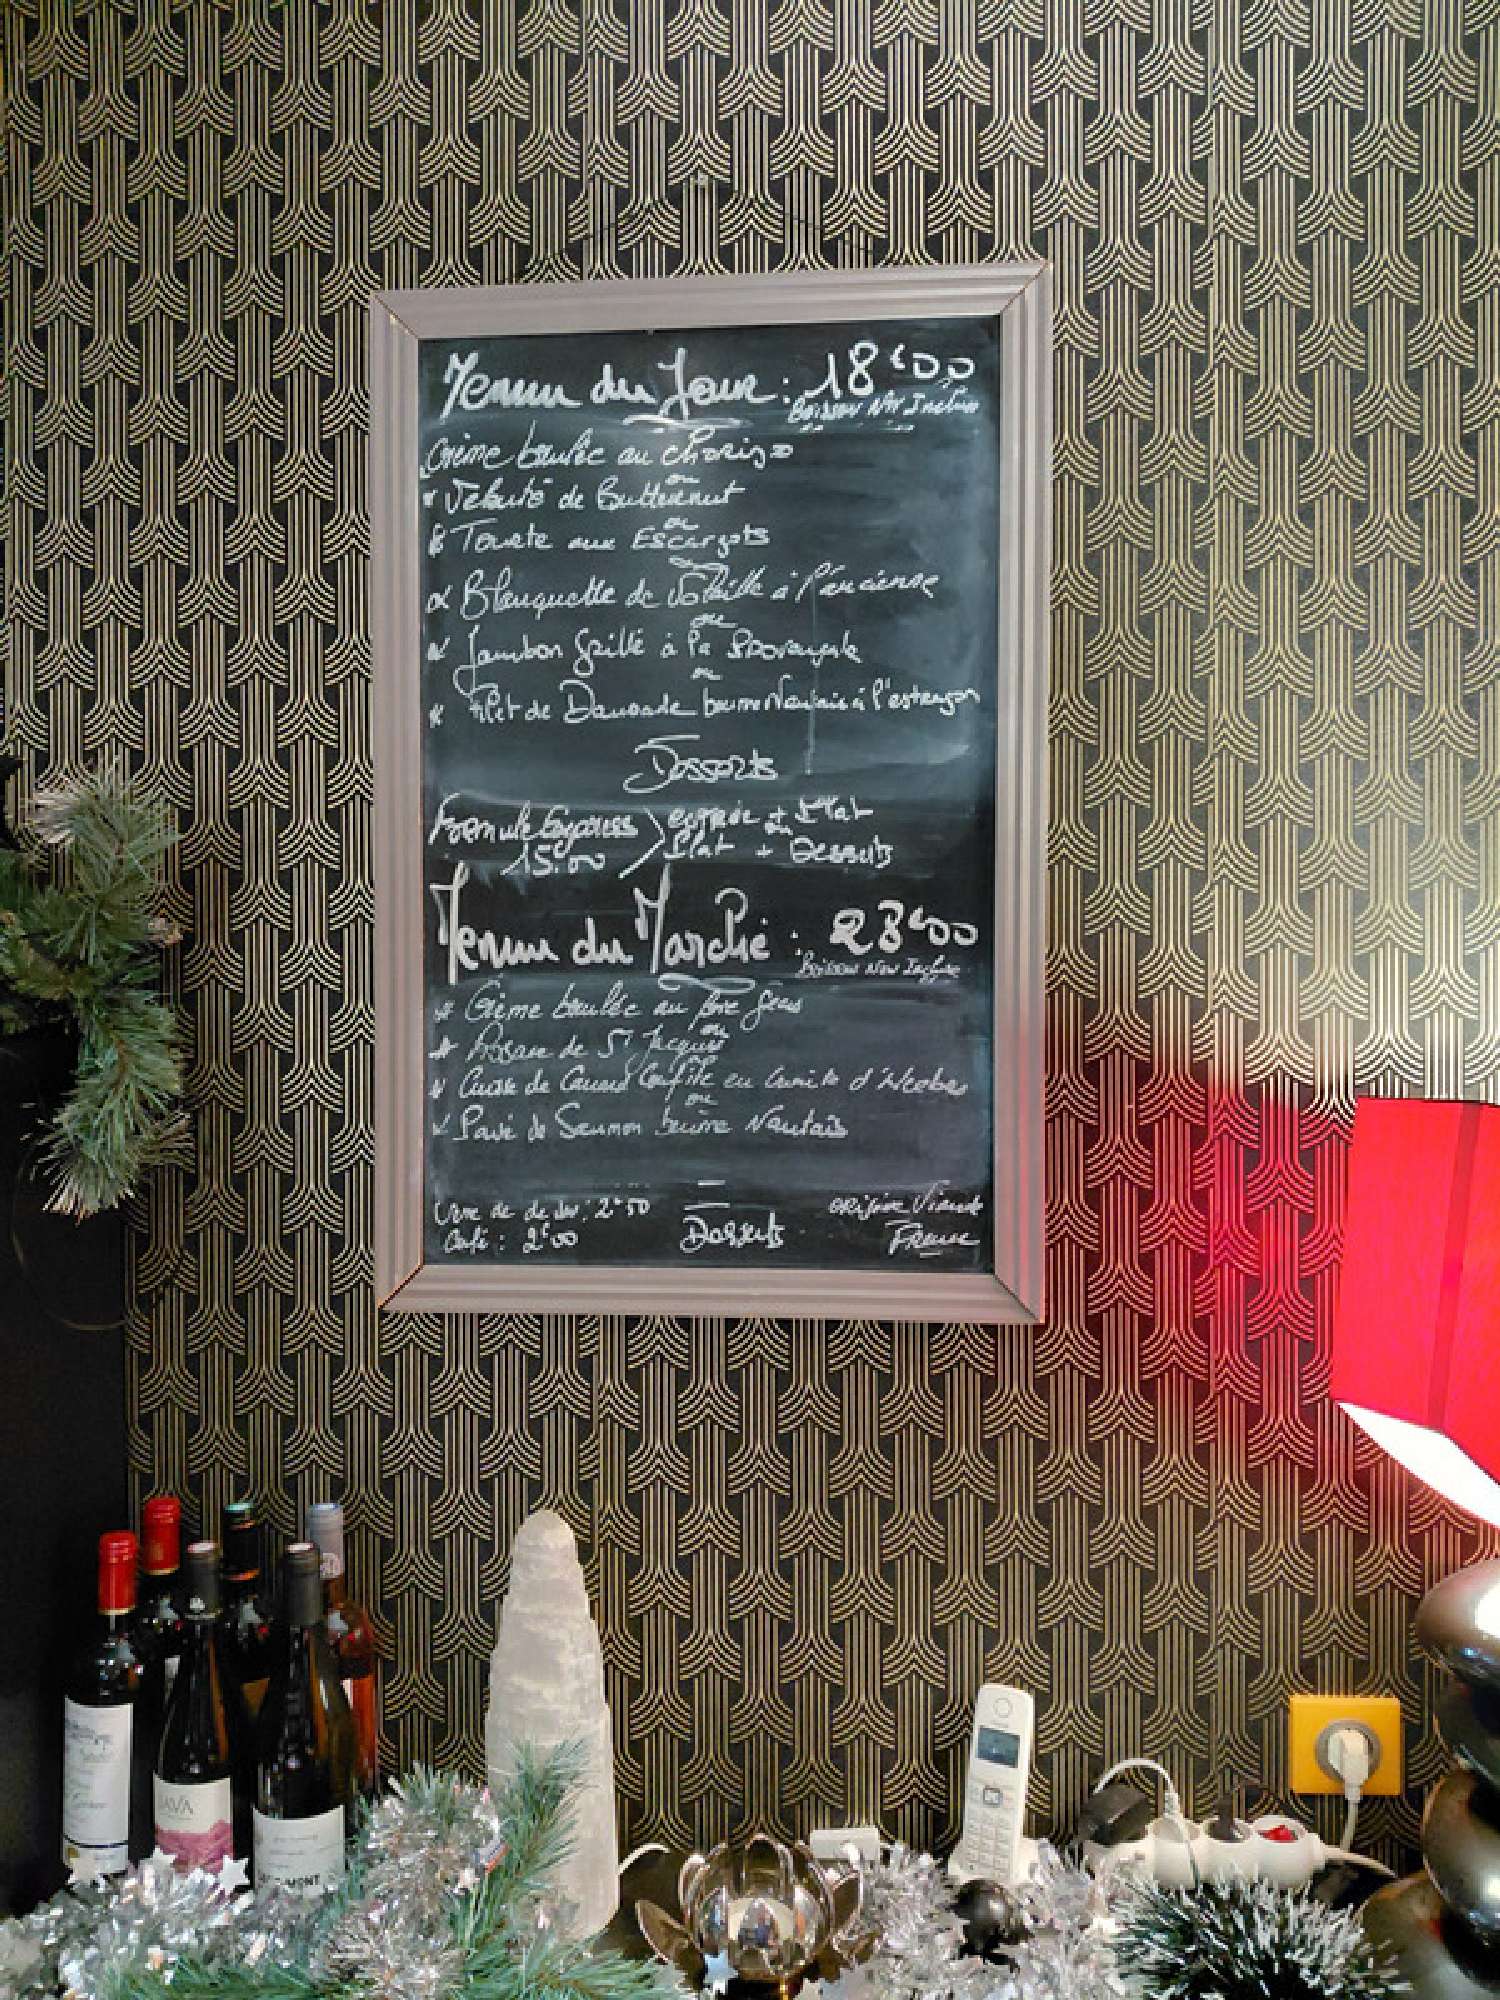 Menu du Jour : 18€00
Boisson Non Inclue
Crème brulée au chorizo
ou
* Velouté de Butternut
ou
* Tourte aux Escargots
* Blanquette de Volaille à l'ancienne
ou
* Jambon Grillé à la
ou
* Filet de Daurade beurre Nantais à l'estragon
Desserts
Formule Express
15€00
entrée + Plat
ou
Plat + Desserts
Menu du Marché : 23€00
Boisson Non Inclue
* Crème brulée au foie gras
ou
* de St Jacques
* Cuisse de Canard Confite en d'
ou
* Pavé de Saumon beurre Nantais
Verre de : 2€50
Café : 2€00
Desserts
origine Viande
France
JAVA